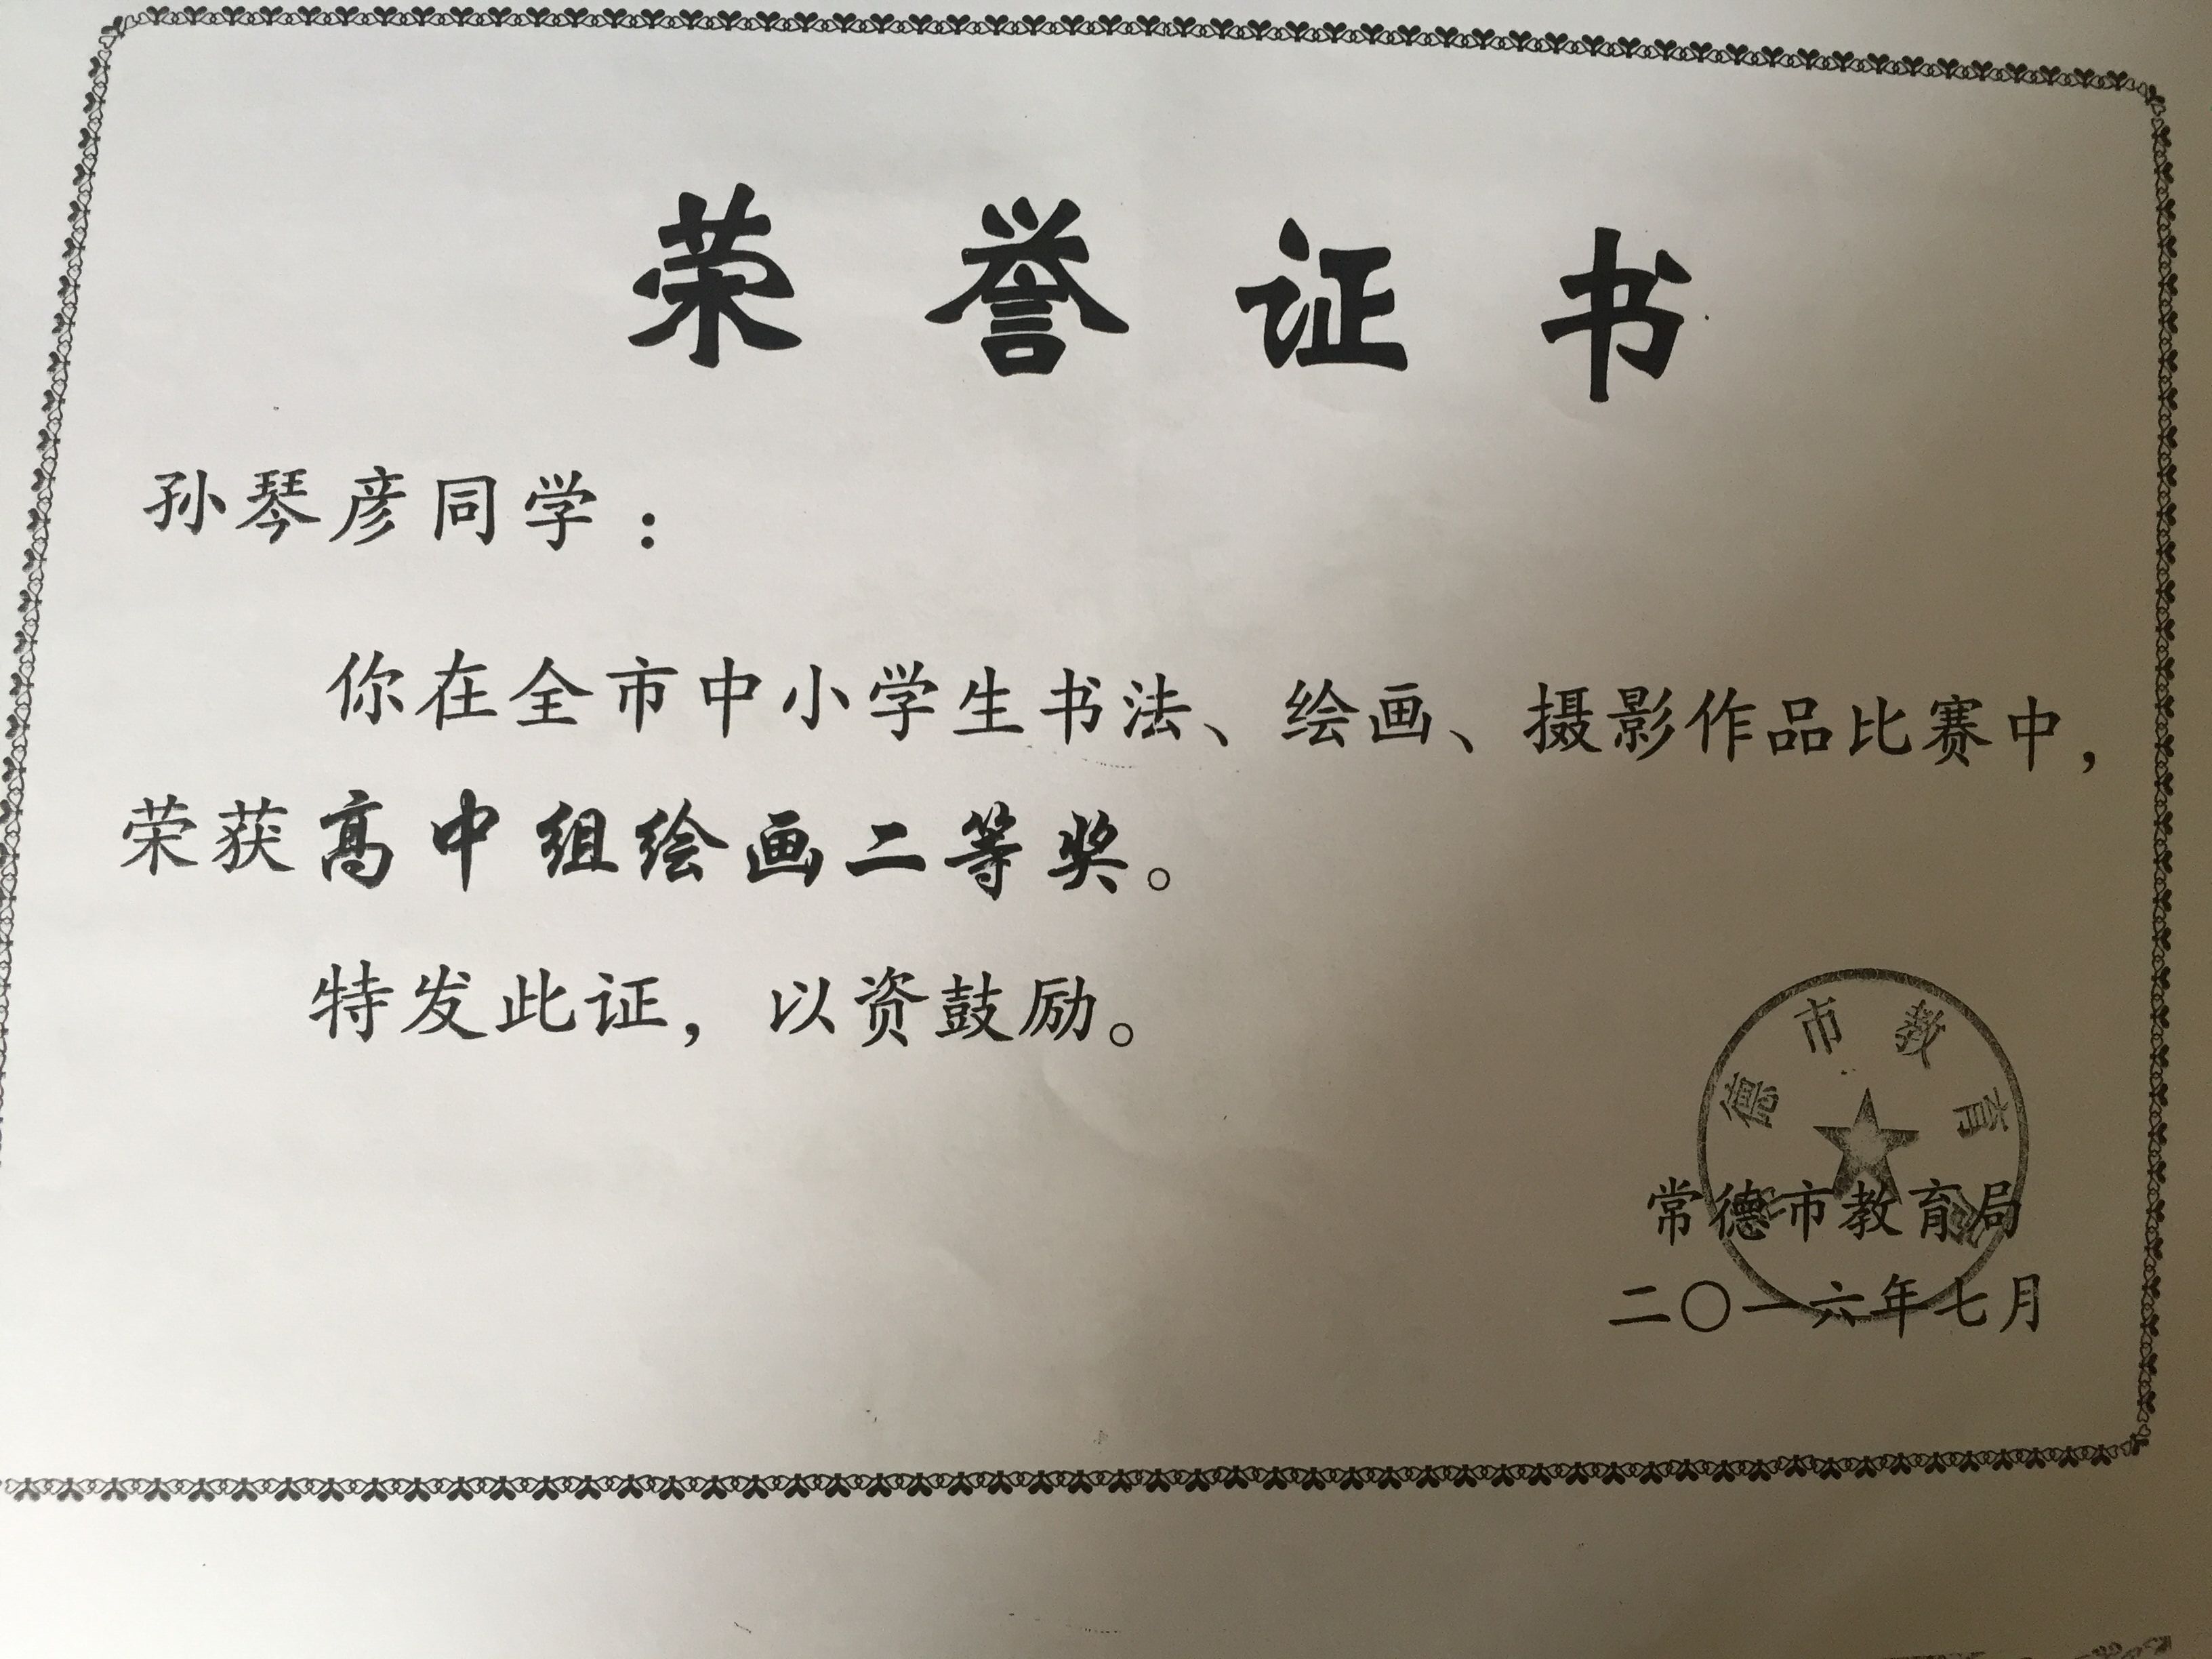 荣誉证书
孙琴彦同学：
你在全市中小学生书法、绘画、摄影作品比赛中，
荣获高中组绘画二等奖。
特发此证，以资鼓励。
德市教育
常德市教育局
二〇一六年七月